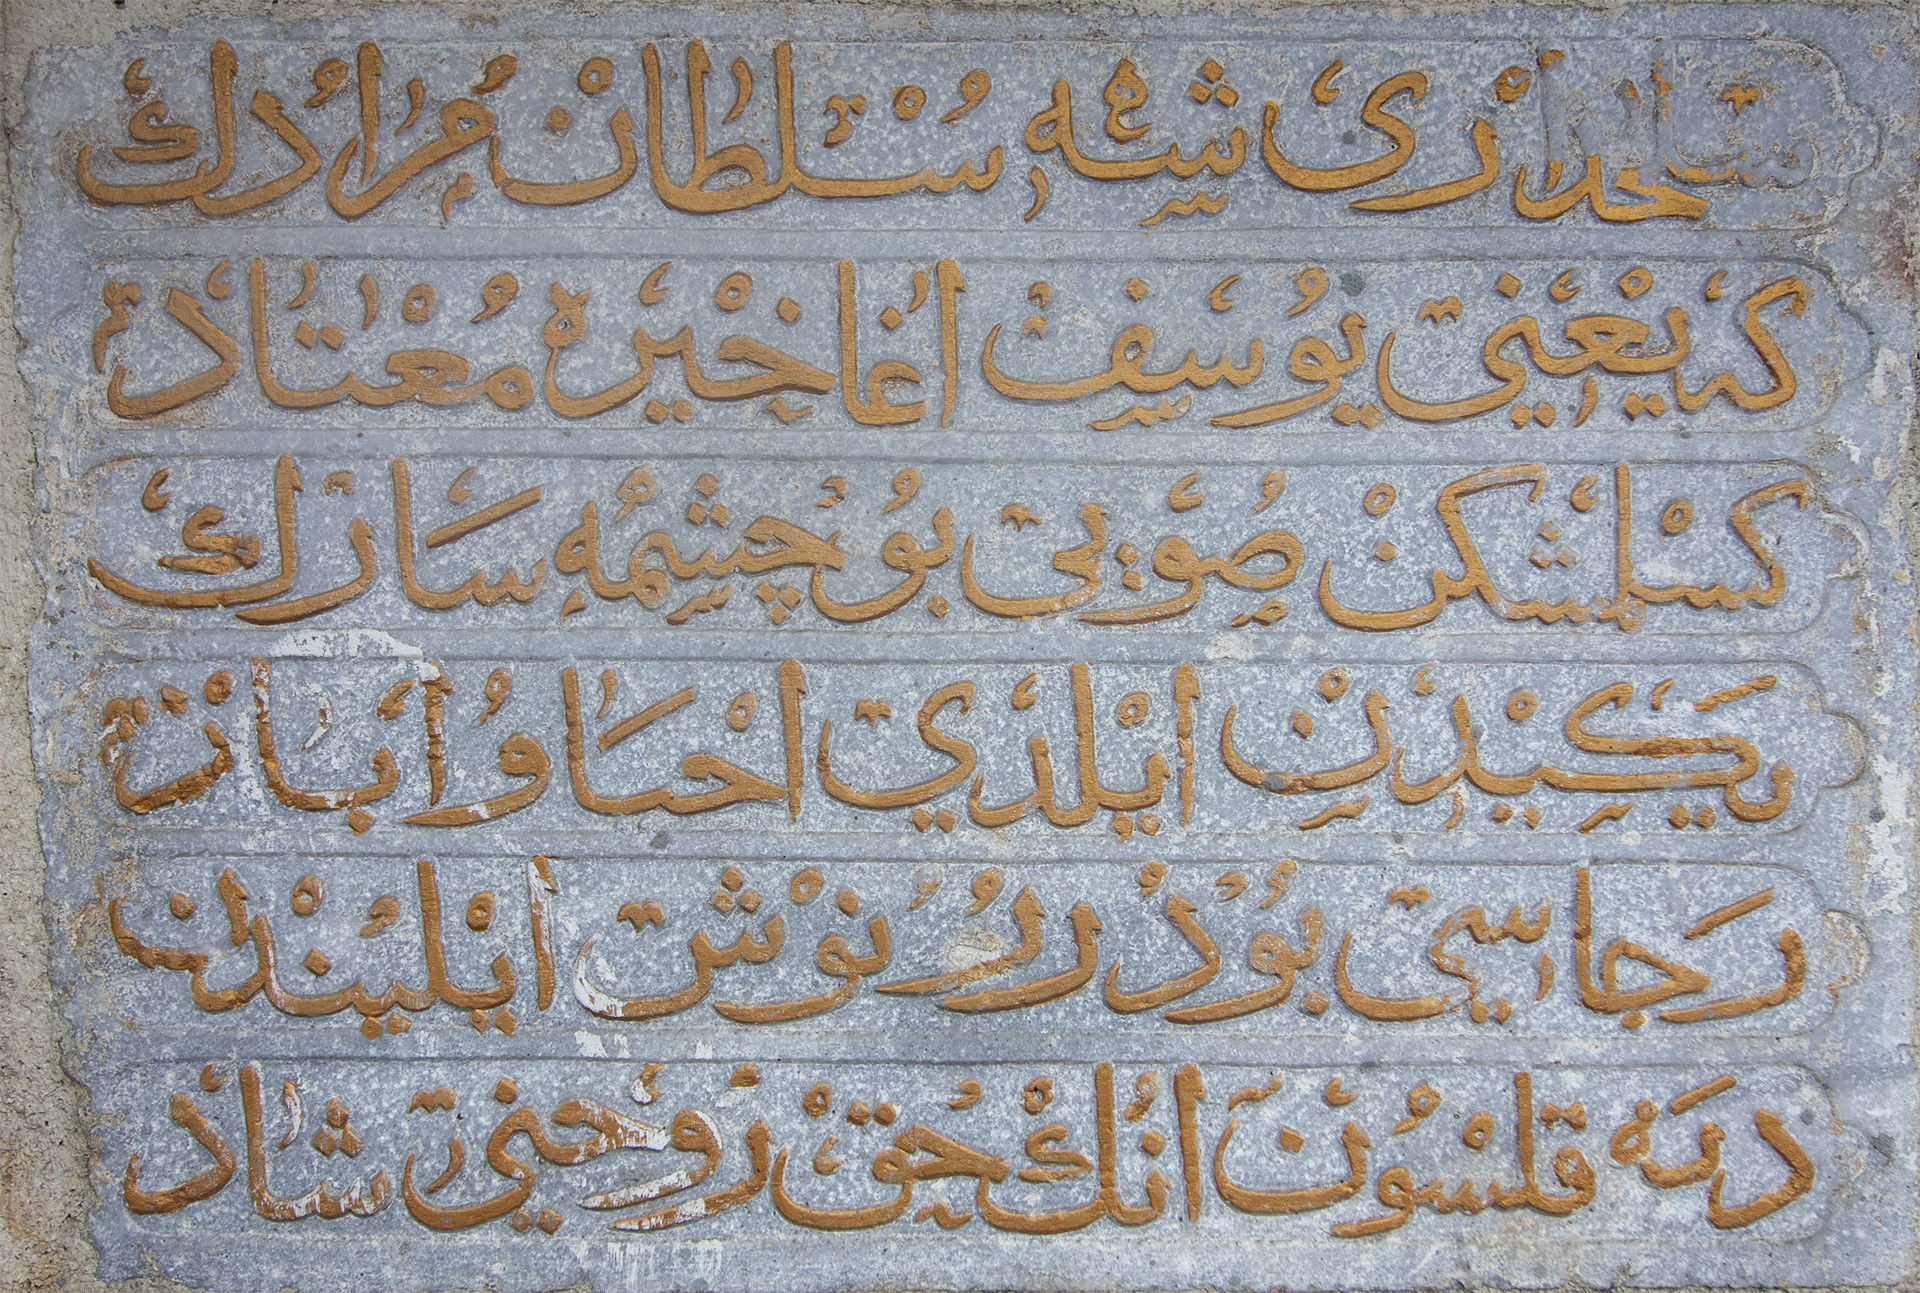 سلحداری شه سلطان مرادك
که یعنی یوسف اغا خیره معتاد
کسلمشکن صویی بو چشمه سارك
یکیدن ایلدی احیا و اباد
رجاسی بودرر نوش ایلیندن
دمه قلسون انك حق روحنی شاد